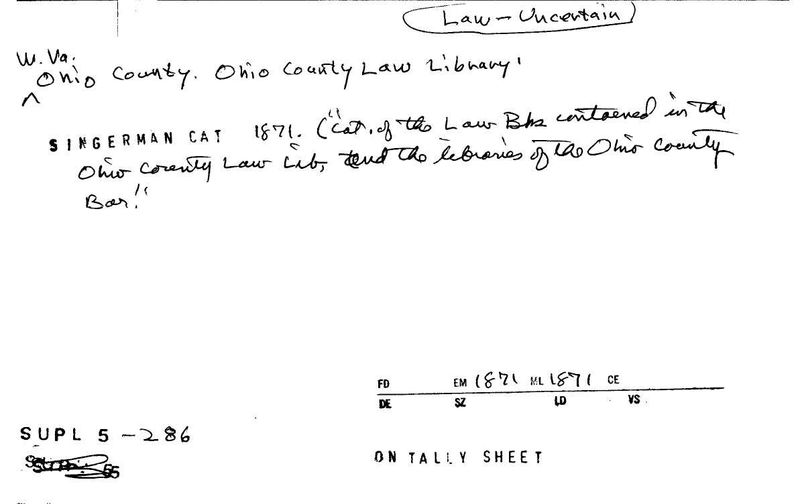 Law - Uncertain
W. Va.
^ Ohio County. Ohio County Law Library.
SINGERMAN CAT 1871. ("Cat. of the Law Bks contained in the
Ohio County Law Lib, and the libraries of the Ohio County
Bar."
FD EM 1871 ML 1871 CE
DE SZ LD VS.
SUPL 5-286
55
ON TALLY SHEET